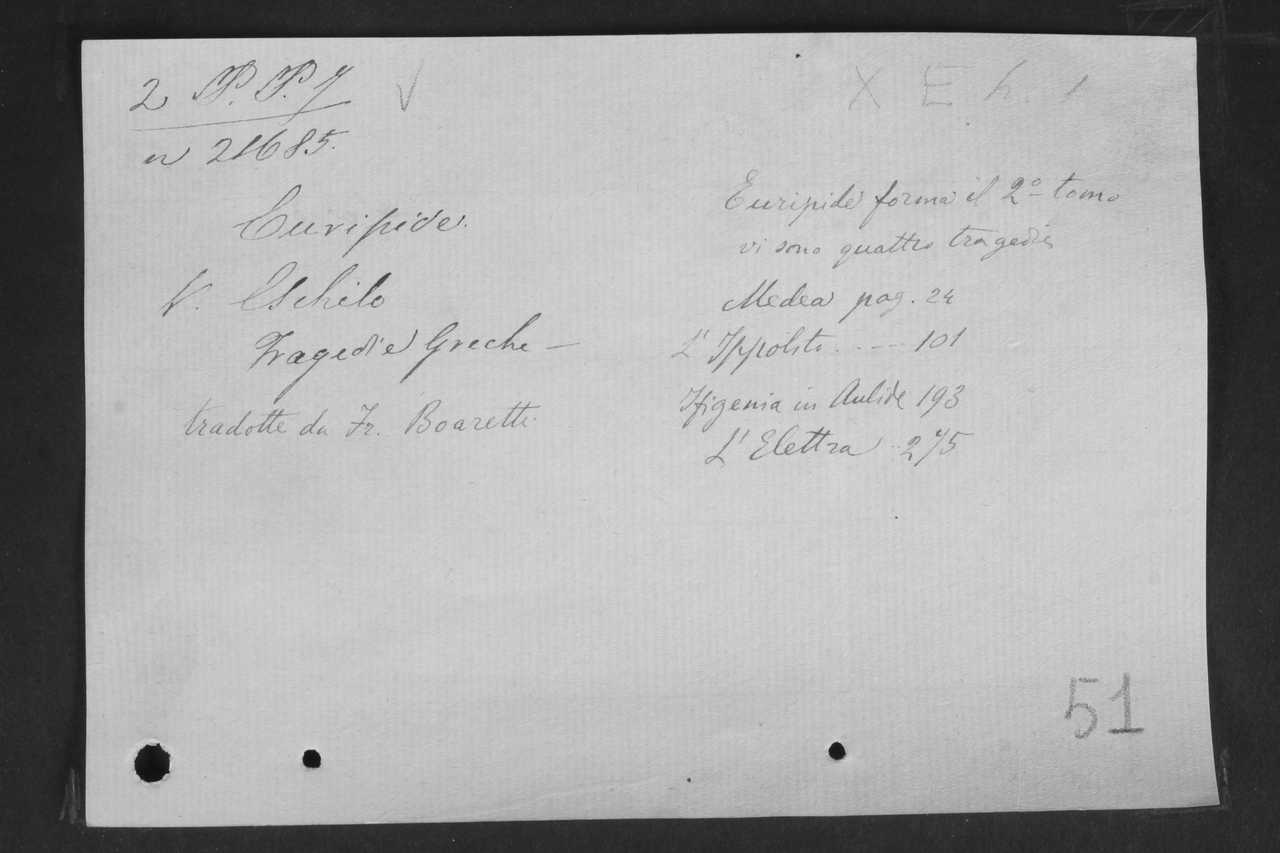 2 P. P. 7
V
X E h. 1
n 21685.
Euripide.
V. Eschilo
Tragedie Greche —
tradotte da Fr. Boaretti
Euripide forma il 2º tomo
vi sono quattro tragedie
Medea pag. 24
L'Ippolito ..---- 101
Ifigenia in Aulide 193
L'Elettra .. 275
51